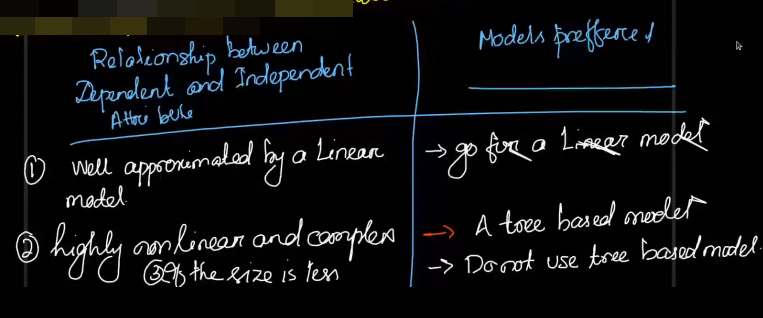 Relationship between
Dependent and Independent
Attribute
Models prefferred
① Well approximated by a Linear
model
→ go for a Linear model
② highly nonlinear and complex
→ A tree based model
③ If the size is less
→ Do not use tree based model.